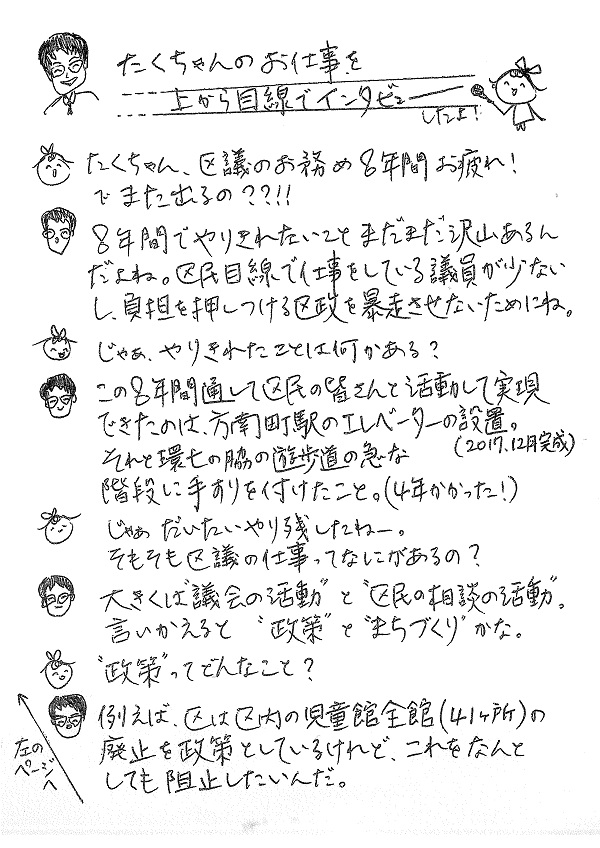 たくちゃんのお仕事を
上から目線でインタビュー
したよ!
たくちゃん、区議のお務め8年間お疲れ!
でまた出るの??!!
8年間でやりきれないことまだまだ沢山あるん
だよね。区民目線で仕事をしている議員が少ない
し、負担を押しつける区政を暴走させないためにね。
じゃぁ、やりきれたことは何かある?
この8年間通して区民の皆さんと活動して実現
できたのは、方南町駅のエレベーターの設置。
(2017.12月完成)
それと環七の脇の遊歩道の急な
階段に手すりを付けたこと。(4年かかった!)
じゃぁだいたいやり残したねー。
そもそも区議の仕事ってなにがあるの?
大きくは"議会の活動"と"区民の相談の活動"。
言いかえると "政策"と"まちづくり"かな。
"政策"ってどんなこと?
例えば、区は区内の児童館全館(41ヶ所)の
廃止を政策としているけれど、これをなんと
しても阻止したいんだ。
左の
ページ
へ